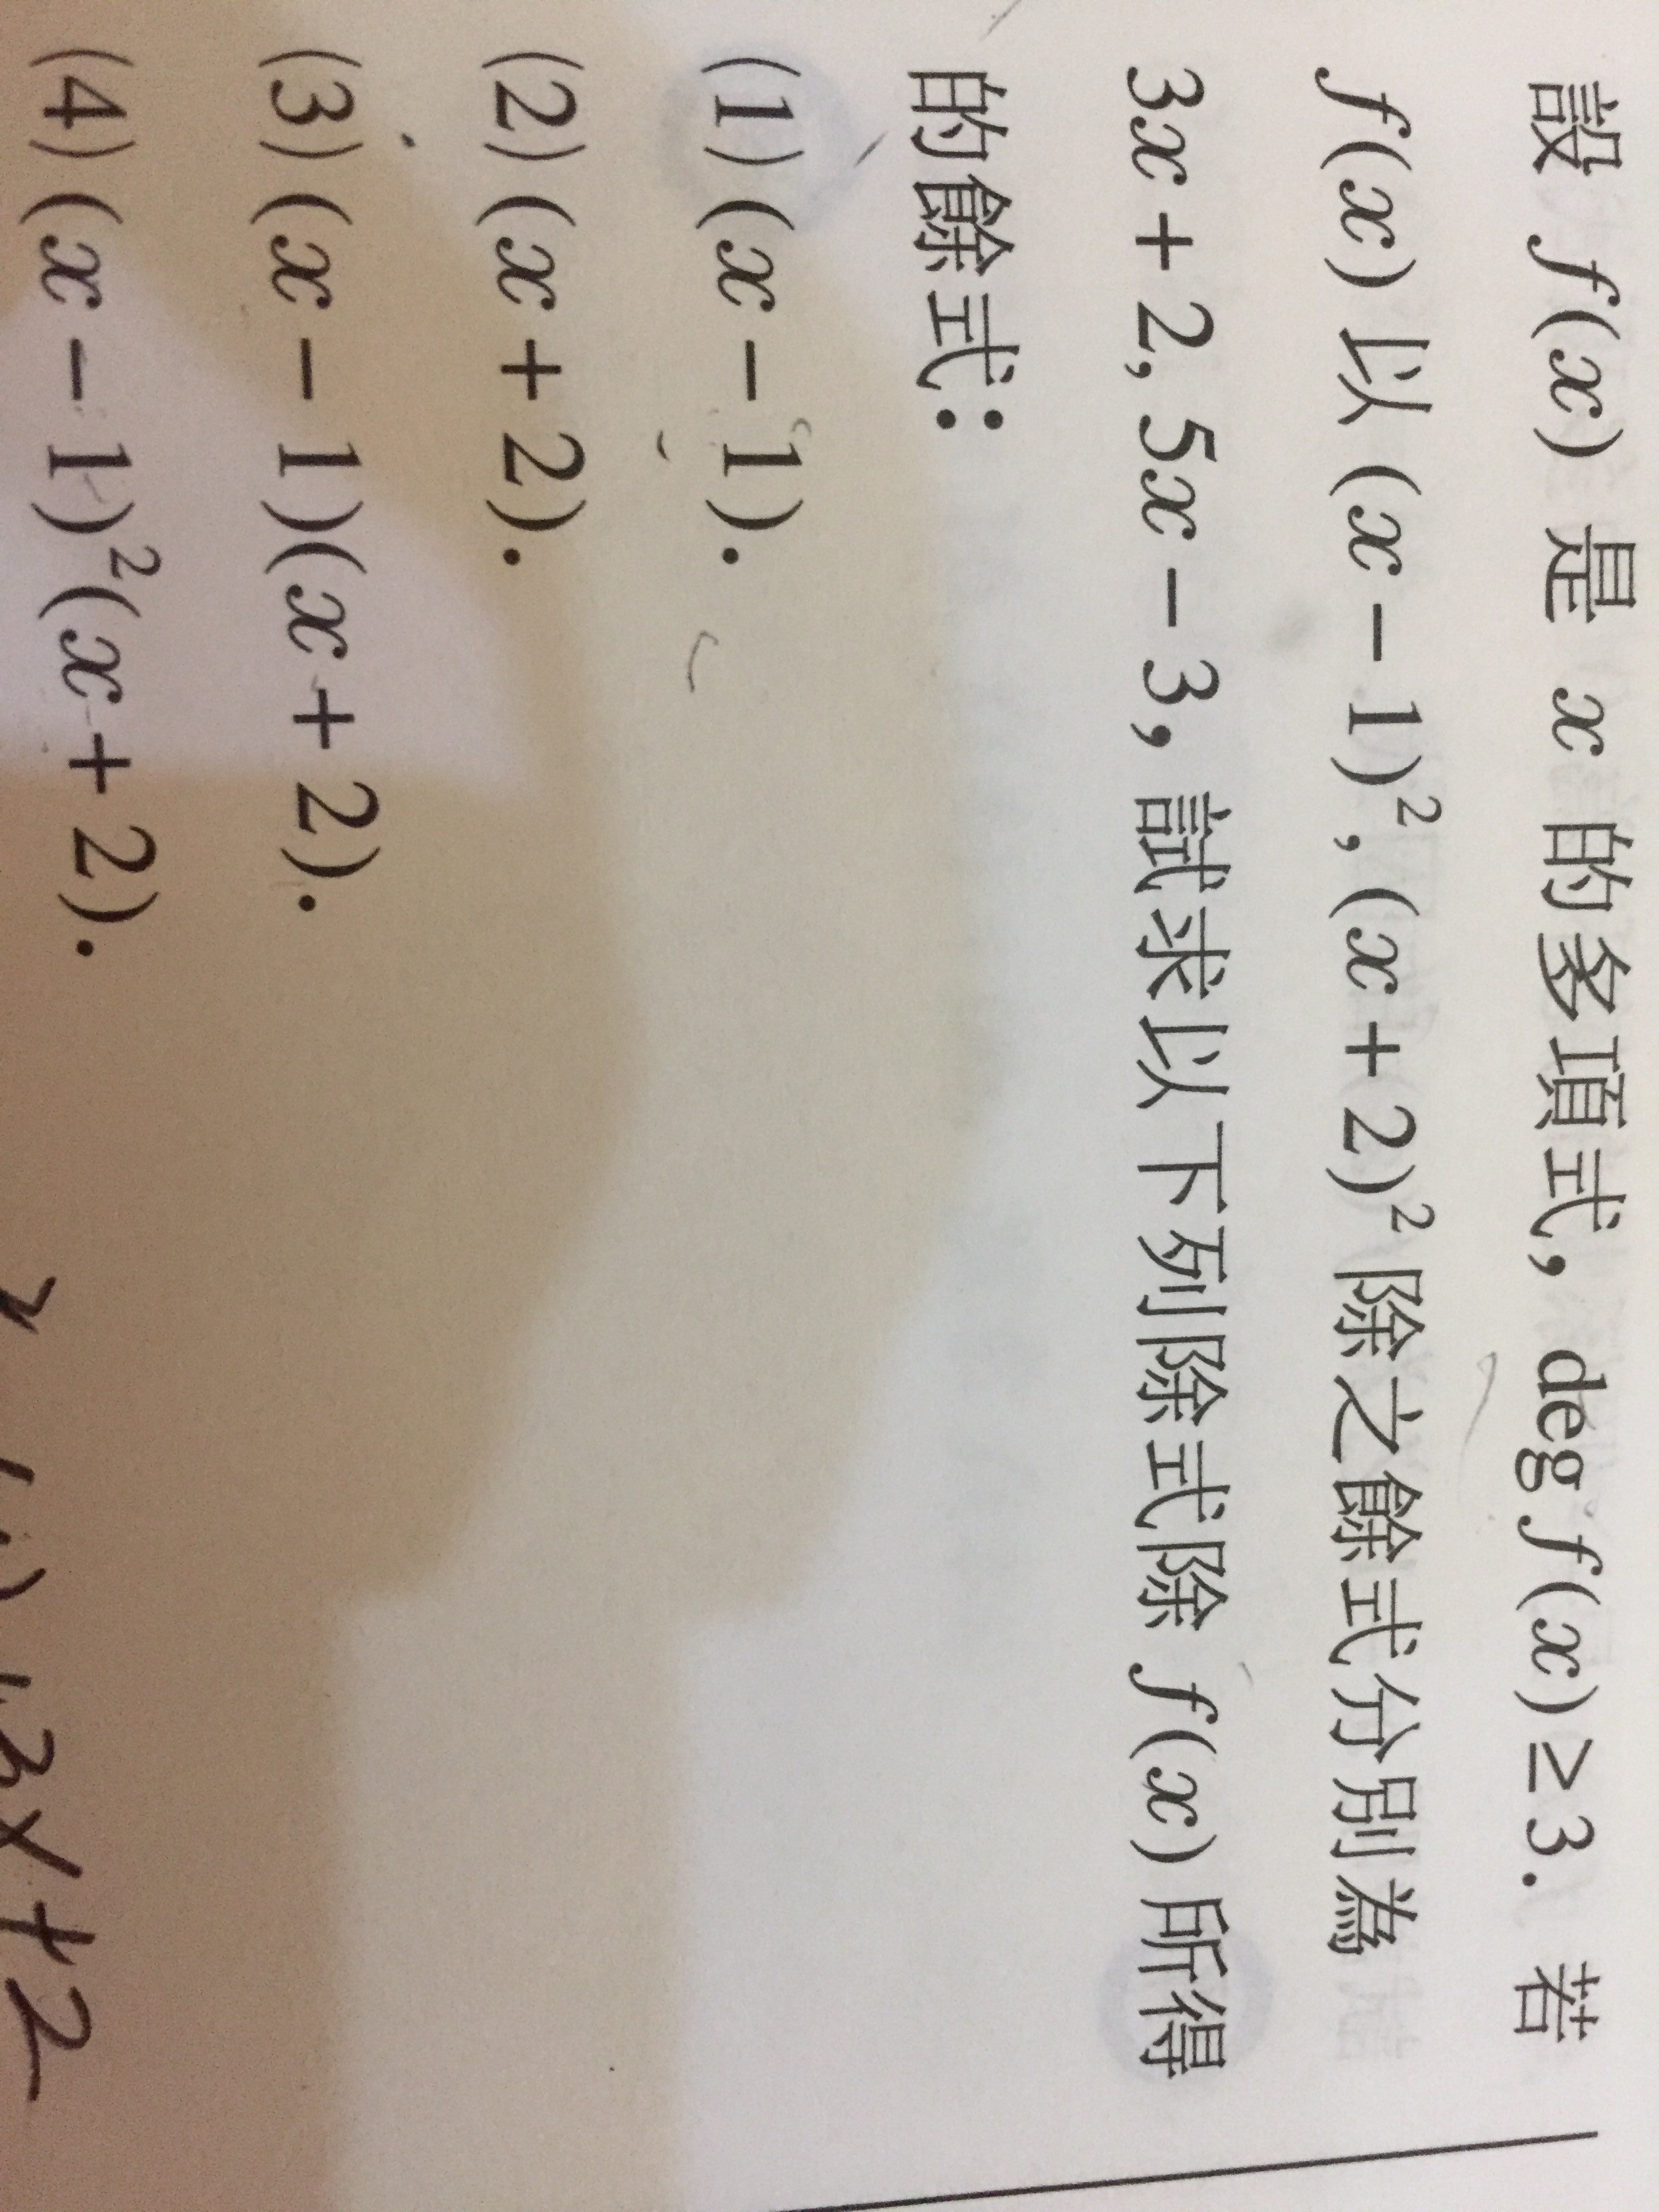 設 f(x) 是 x 的多項式, deg f(x) ≥ 3. 若
f(x) 以 (x − 1)², (x + 2)² 除之餘式分別為
3x + 2, 5x − 3, 試求以下列除式除 f(x) 所得
的餘式:
(1) (x − 1).
(2) (x + 2).
(3) (x − 1)(x + 2).
(4) (x − 1)²(x + 2).
3x+2